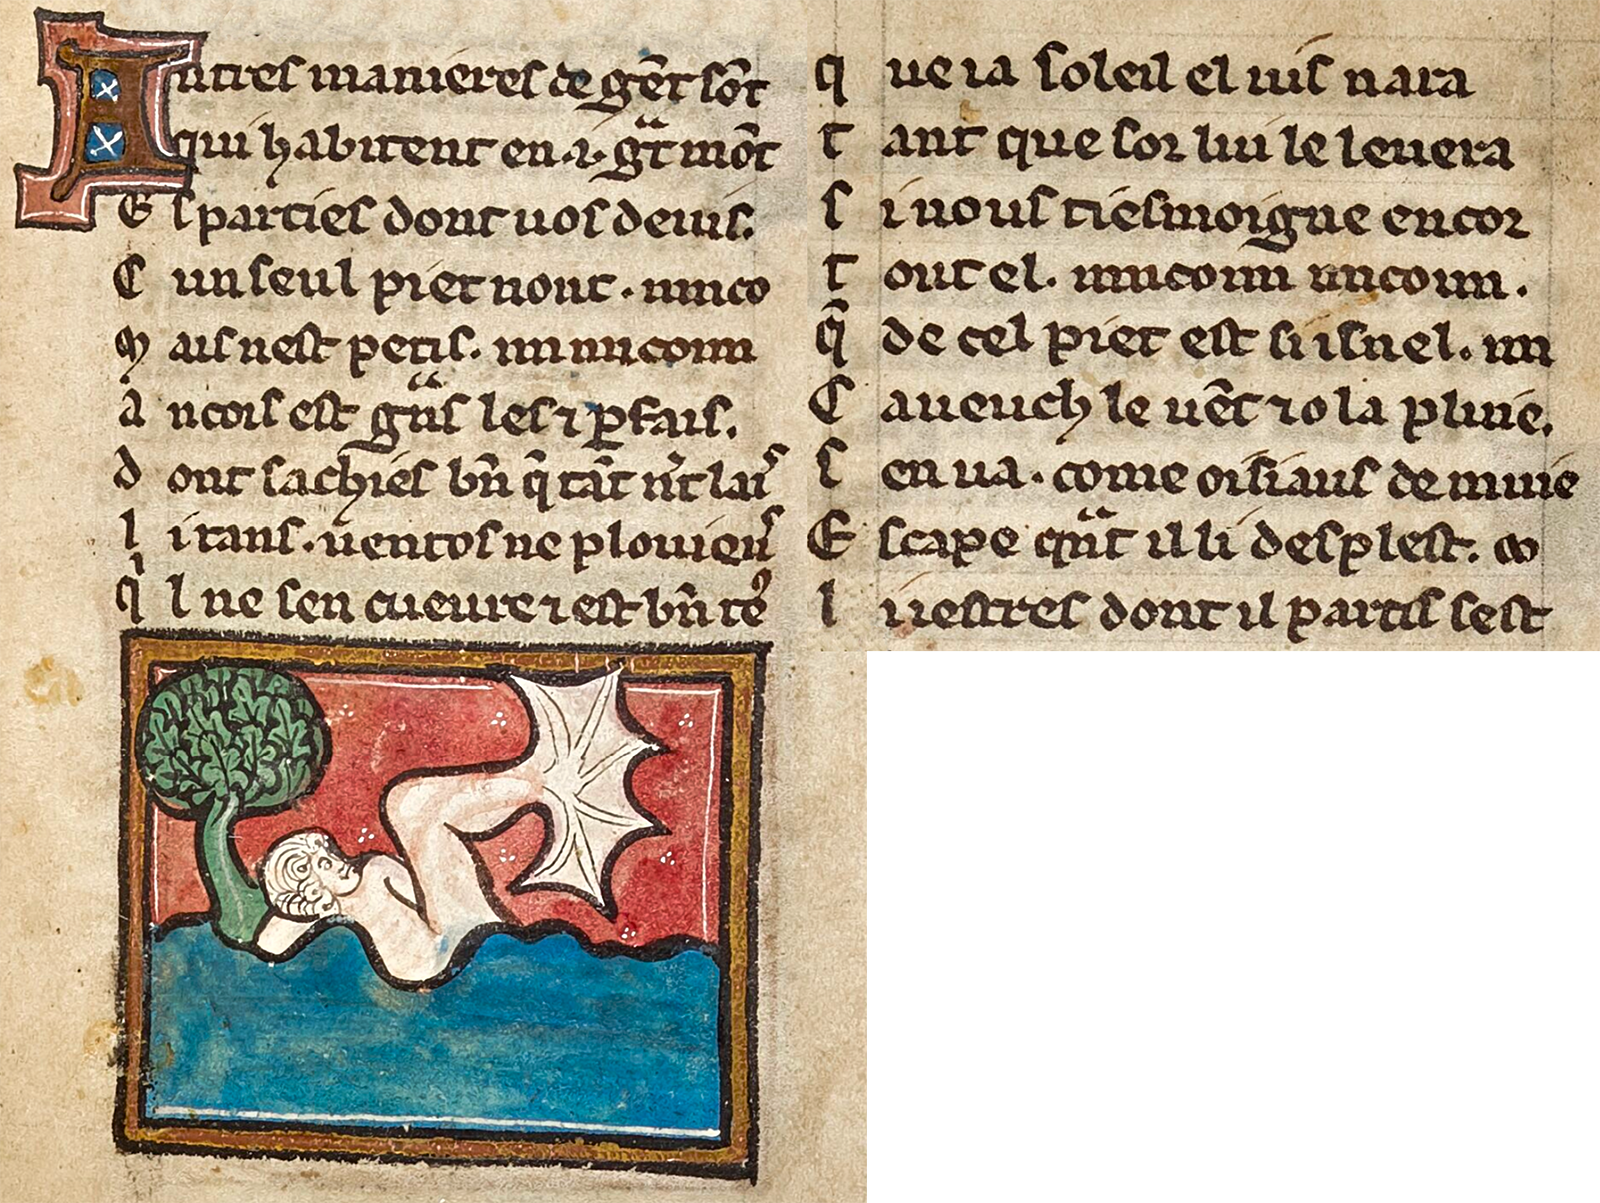 Autres manieres de gẽt sõt
qui habitent en .i. gᵃt mõt
Es parties dont uos deuis.
C un seul piet nont . ninco
M ais nest petis. nninincoinn
A ncois est gᵃns les ⁊ ꝑfais.
d ont sachies bñ q̃ tãt nͥt lai
l i tans . uentos ne plouieus
qͥ l ne sen cueure ⁊ est bñ tẽ
q ue ia soleil el uis nara
t ant que sor lui le leuera
s i nous tiesmoigne encor
t out el. nnincoinn nncoinn .
q̃ de cel piet est si isnel. nn
C aueuch le uẽt ⁊ o la pluie.
s en ua . come oisiaus de muie
E scape qᵃt il li desplest. co
l i iestres dont il partis sest